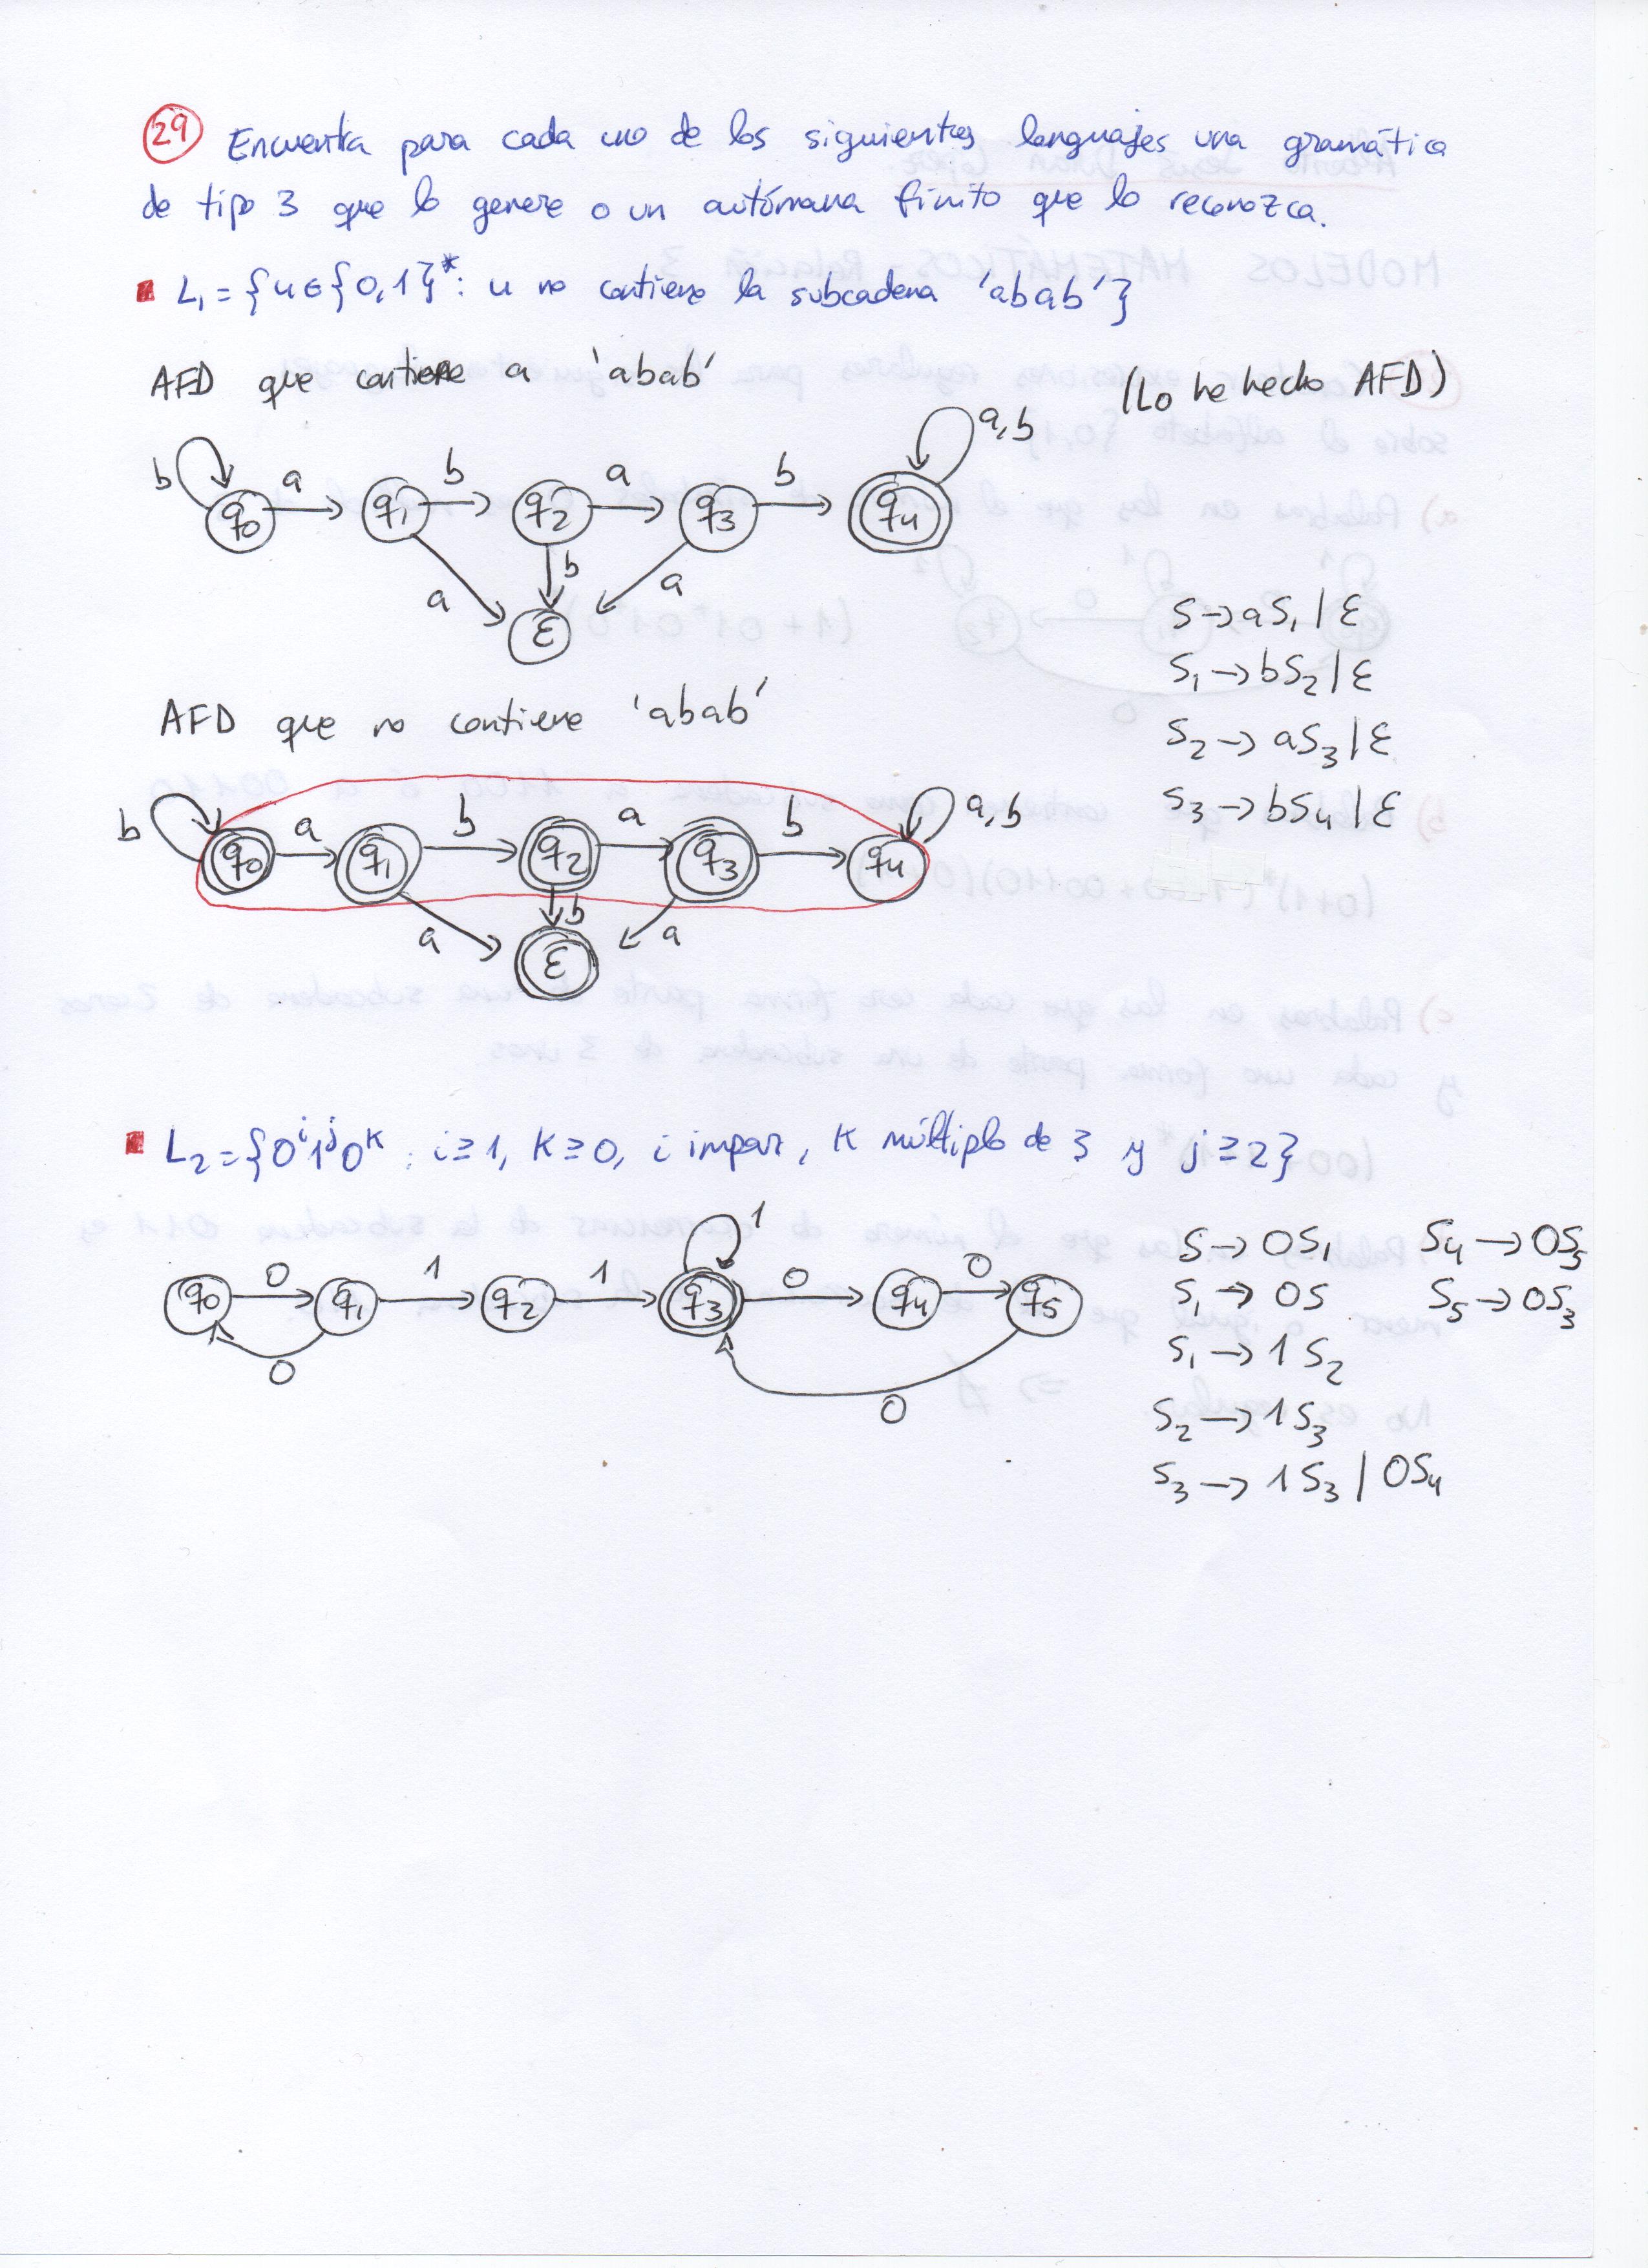 29 Encuentra para cada uno de los siguientes lenguajes una gramática
de tipo 3 que lo genere o un autómana finito que lo reconozca.
L₁ = {u ∈ {0,1}*: u no contiene la subcadena 'abab'}
AFD que contiene a 'abab'
(Lo he hecho AFD)
b a b a b a,b
q0 q1 q2 q3 q4
a b a
ε
S → aS₁ | ε
S₁ → bS₂ | ε
S₂ → aS₃ | ε
S₃ → bS₄ | ε
AFD que no contiene 'abab'
b a b a b a,b
q0 q1 q2 q3 q4
a b a
ε
L₂ = {0ⁱ1ʲ0ᴷ : i ≥ 1, K ≥ 0, i impar, K múltiplo de 3 y j ≥ 2}
1
0 1 1 0 0
q0 q1 q2 q3 q4 q5
0 0
S → 0S₁ S₄ → 0S₅
S₁ → 0S S₅ → 0S₃
S₁ → 1S₂
S₂ → 1S₃
S₃ → 1S₃ | 0S₄